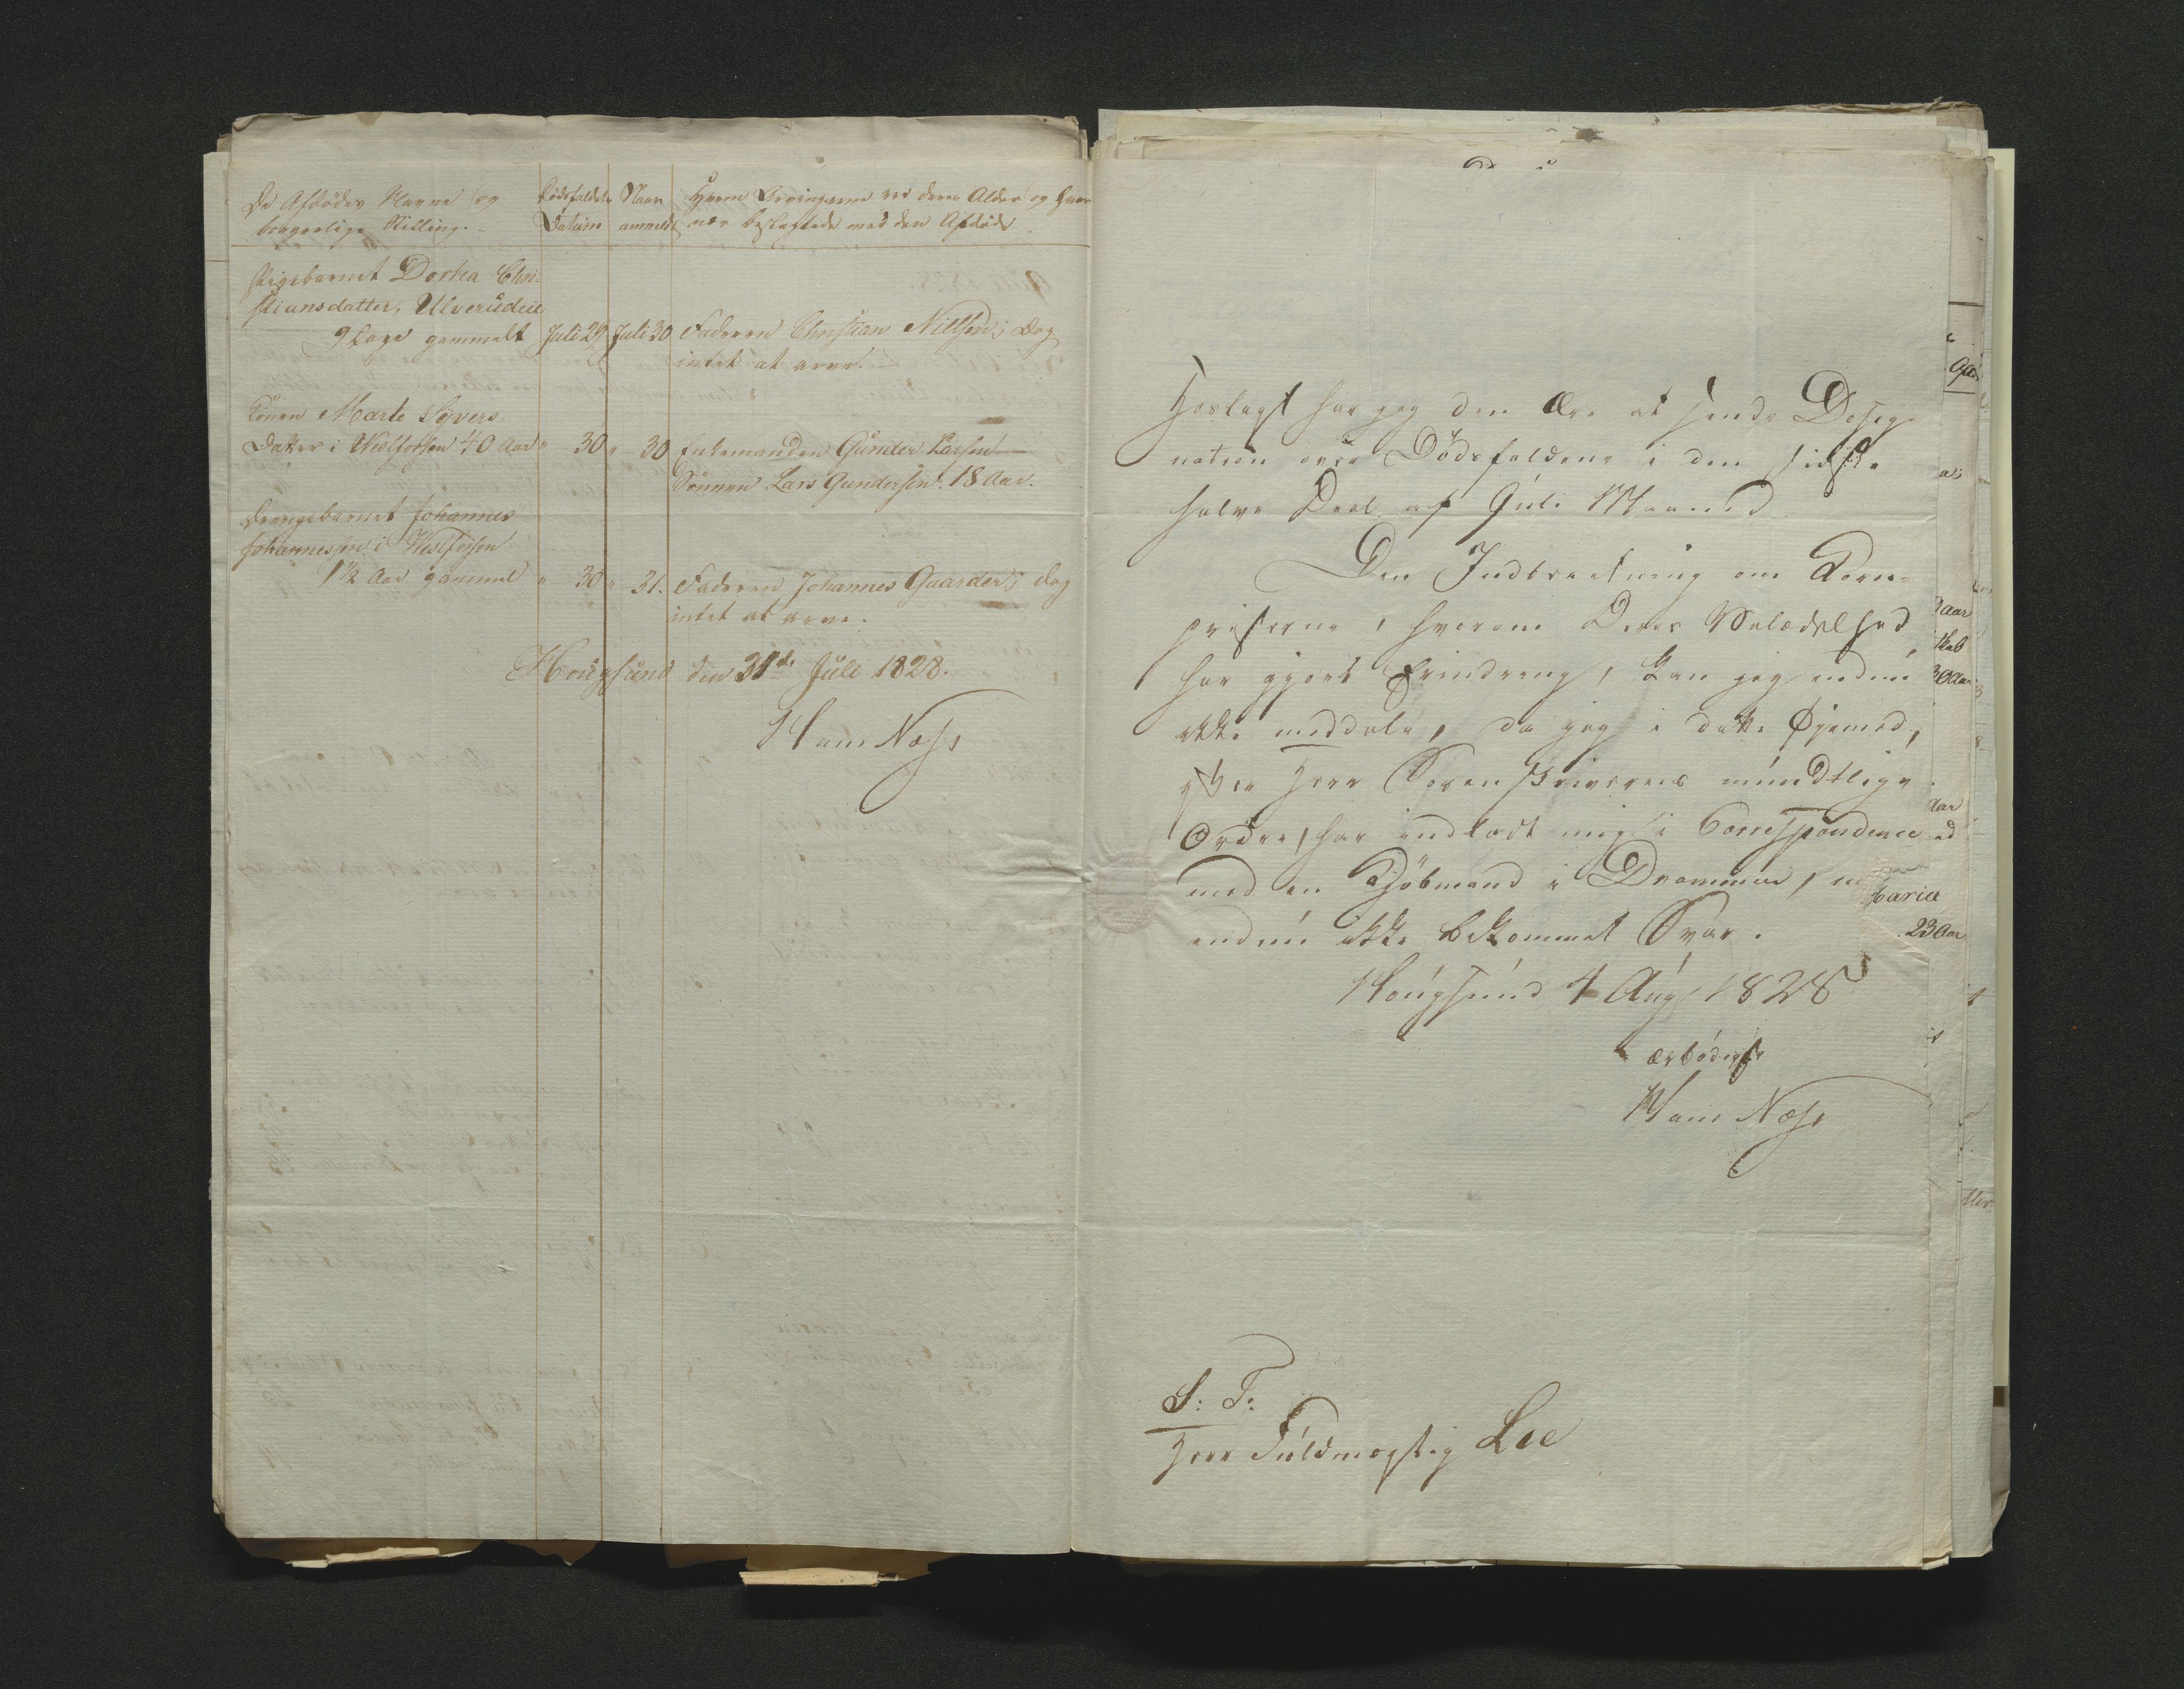 De Afdødes Navne og
borgerlige Stilling.
Dødsfaldets
Datum
Naar
anmeldt
Hvem Arvingerne ere deres Alder og hvor
nær beslægtede med den Afdøde.
Pigebarnet Dorthea Chri-
stiansdatter, Ulverudeie
9 Dage gammelt Juli 29 Juli 30 Faderen Christian Nillsen; dog
intet at arve.
Konen Marte Syvers
Datter i Westfossen 40 Aar " 30 " 30 Enkemanden Gunder Larsen
Sönnen Lars Gundersen. 18 Aar.
Drengebarnet Johannes
Johannessen i Westfossen
1½ Aar gammel " 30 " 31. Faderen Johannes Gaarder; dog
intet at arve.
Hougsund den 31te Juli 1828.
Ham Næss
Hoslagt har jeg den Ære at sende Desig-
nation over Dödsfaldene i den sidste
halve Deel af Juli Maaned
Den Indberetning om Korn-
priserne, hvorom Deres Velædelhed
har gjort Erindring, kan jeg endnu
ikke meddele, da jeg i dette Øjemed,
efter Herr Sorenskriverens mundtlige
Ordre, har indladt mig i Correspondence
med en Kjöbmand i Drammen,
endnu ikke bekommet Svar.
Hougsund 4 Aug 1828
ærbödigst
Ham Næss
S: T:
Herr Fuldmægtig Lee
Aar
30 Aar
Aar
ed
Maria
23 Aar